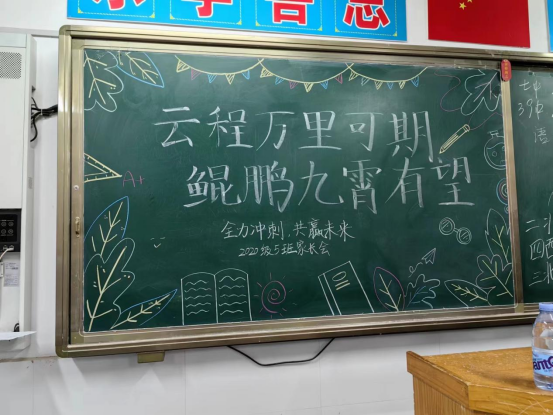 善思
云程万里可期
鲲鹏九霄有望
A+
全力冲刺,共赢未来
2020级5班家长会
二
四
三